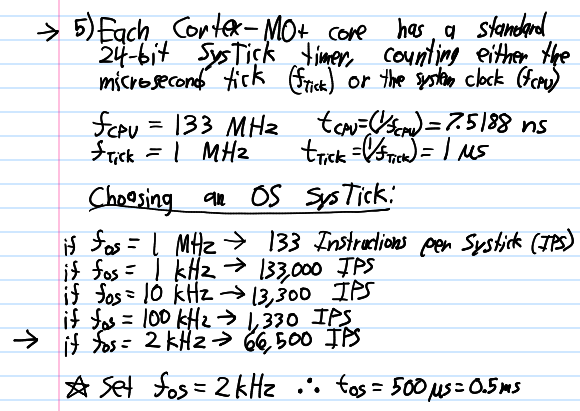 → 5) Each Cortex-M0+ core has a standard
24-bit SysTick timer, counting either the
microsecond tick (fTick) or the system clock (fCPU)
fCPU = 133 MHz tCPU=(1/fCPU)=7.5188 ns
fTick = 1 MHz tTick=(1/fTick)=1 μs
Choosing an OS SysTick:
if fos = 1 MHz → 133 Instructions per Systick (IPS)
if fos = 1 kHz → 133,000 IPS
if fos = 10 kHz → 13,300 IPS
if fos = 100 kHz → 1,330 IPS
→ if fos = 2 kHz → 66,500 IPS
☆ Set fos = 2 kHz ∴ tos = 500 μs = 0.5 ms